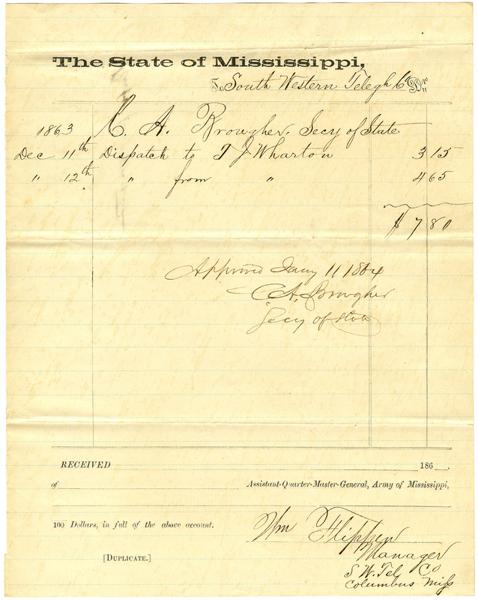 The State of Mississippi,
To South Western Telegh Co Dr.
1863 C. A. Brougher, Secy of State
Dec 11th Dispatch to T J Wharton 3 15
" 12th " from " 4 65
$ 7 80
Approved Jany 11 1864
C A. Brougher
Secy of State
RECEIVED 186 .
of Assistant-Quarter-Master-General, Army of Mississippi,
100 Dollars, in full of the above account.
Wm Flippen
Manager
[DUPLICATE.]
S. W. Tel Co
Columbus Miss